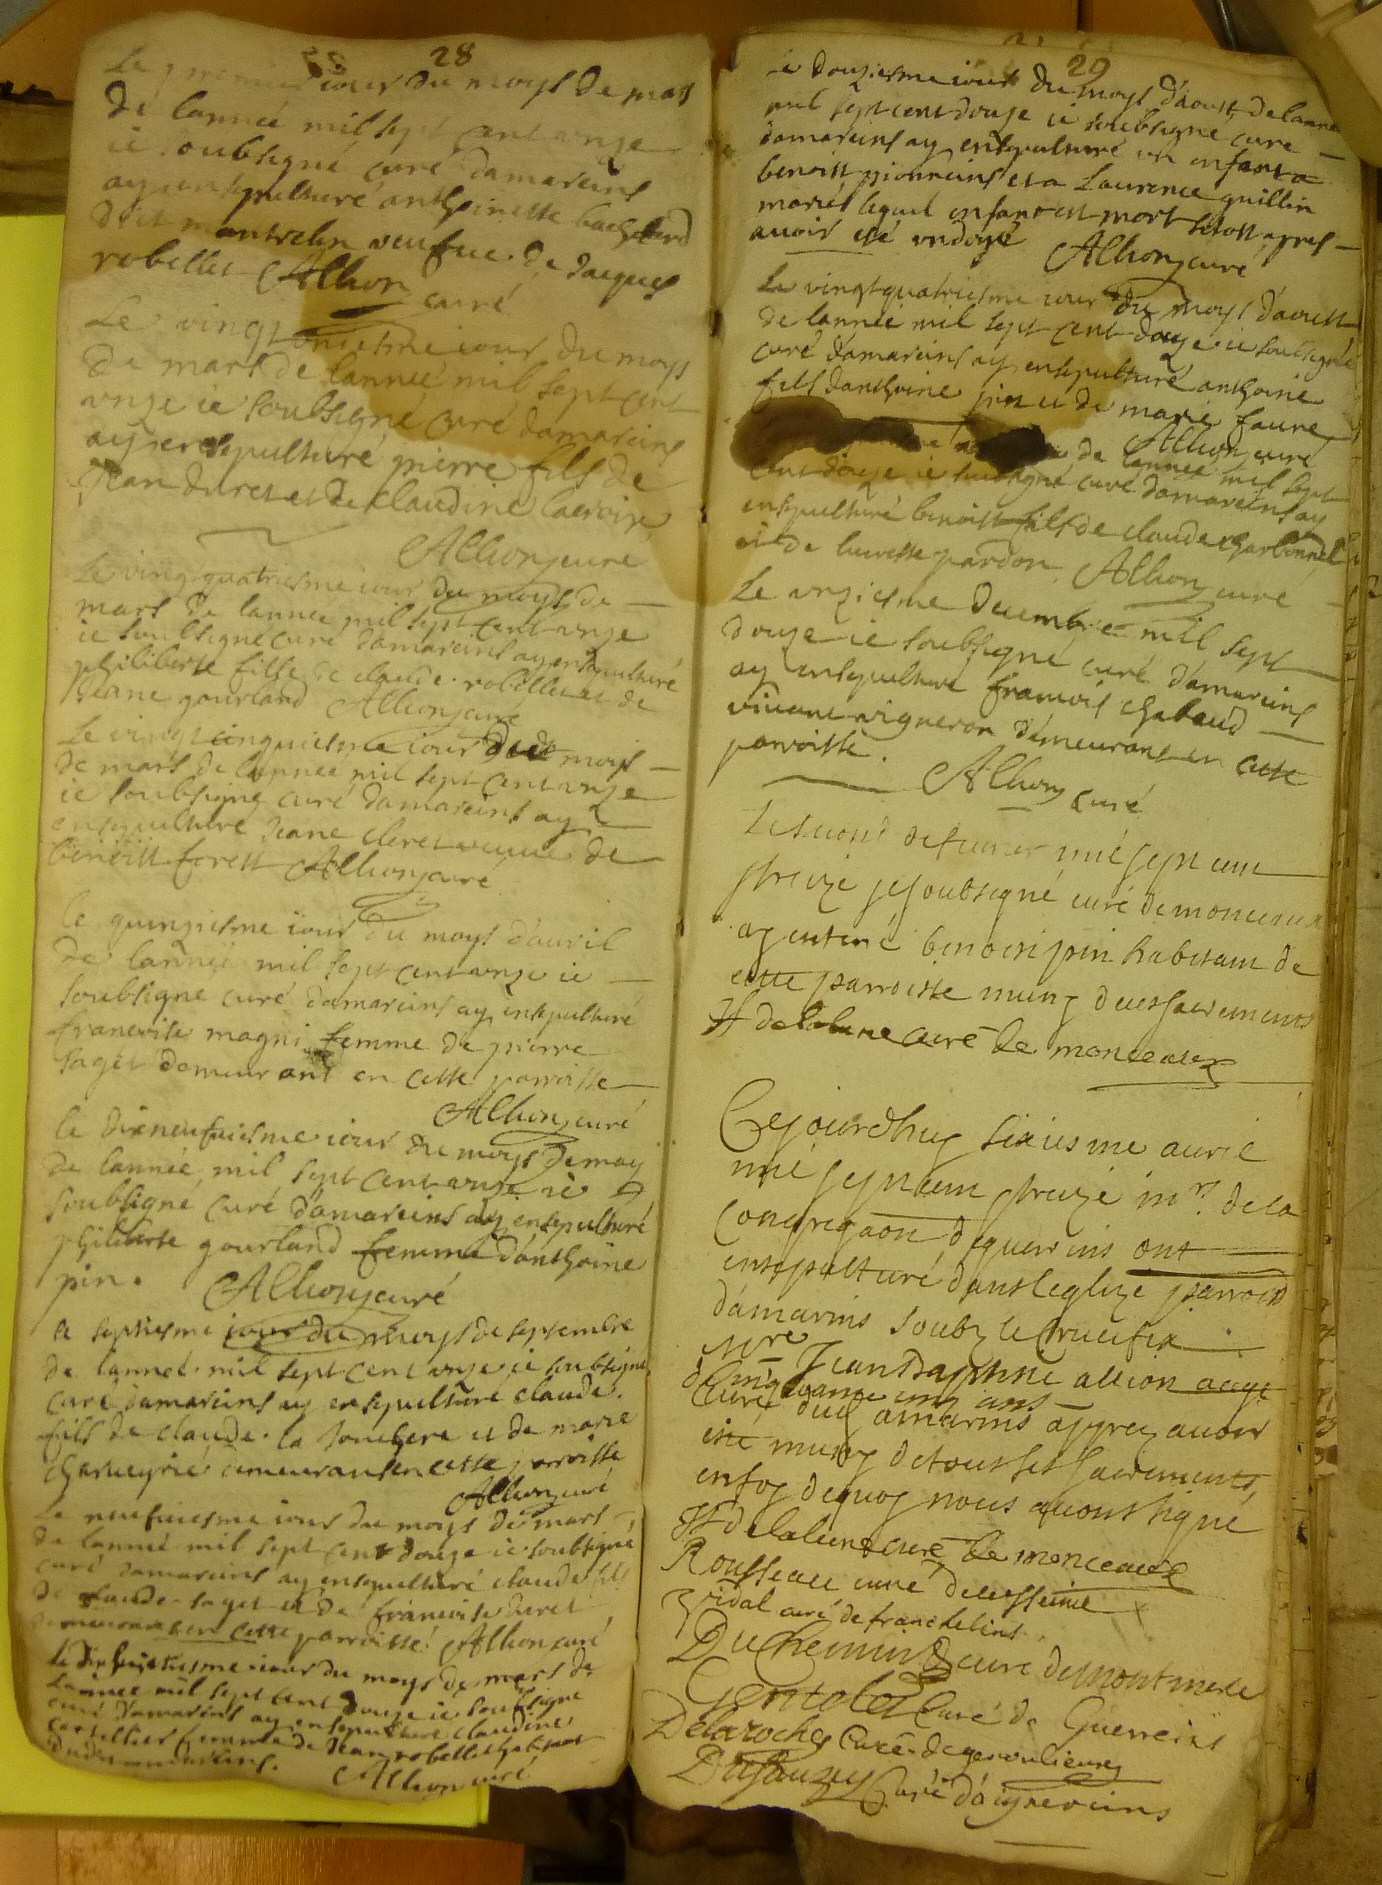 28
Le premier iour du moys de mars
de lannee mil sept cent unze
ie soubsigné curé damareins
ay ensepulturé anthoinette
dit montrelin veufue de Jaques
robellet Allion curé
Le vingt uniesme iour du moys
de mars de lanneé mil sept cent
unze ie soubsigné curé damareins
ay ensepulturé pierre fils de
Jean duret et de claudine lacroix
Allion curé
Le vingt quatriesme iour du moys de
mars de lannee mil sept cent unze
ie soubsigné curé damareins ay ensepulturé
philiberte fille de claude robellet et de
Jeane gourland Allion curé
Le vingt cinquiesme iour dudt moys
de mars de lanneé mil sept cent unze
ie soubsigné curé damareins ay
ensepulturé Jeane cleret veuue de
benoist forest Allion curé
le quinziesme iour du moys dauril
de lanneé mil sept cent unze ie
soubsigné curé damareins ay ensepulturé
francoise magni femme de pierre
saget demeurant en cette parroisse
Allion curé
le dixneufuiesme iour du moys de may
de lanneé mil sept cent unze ie
soubsigné curé damareins ay ensepulturé
philiberte gourland femme danthoine
pin. Allion curé
le septiesme iour du moys de septembre
de lanneé mil sept cent unze ie soubsigné
curé damareins ay ensepulturé claude
fils de claude la souchere et de marie
demeurant en cette parroisse
Allion curé
Le neufuiesme iour du moys de mars
de lanneé mil sept cent douze ie soubsigné
curé damareins ay ensepulturé claude fils
de claude saget et de francoise duret
demeurant en cette parroisse Allion curé
Le dixhuictiesme iour du moys de mars de
lannee mil sept cent douze ie soubsigné
curé damareins ay ensepulturé claudine
femme de Jean robellet
Allion curé
29
Le douziesme iour du moys daoust de lanneé
mil sept cent douze ie soubsigné curé
damareins ay ensepulturé un enfant a
benoist pionneins et a Laurence guillin
mariés lequel enfant est mort sitost apres
auoir esté ondoyé Allion curé
Le vingtquatriesme iour du moys daoust
de lanneé mil sept cent douze ie soubsigné
curé damareins ay ensepulturé anthoine
fils danthoine pin et de marie faure
Allion curé
de lanneé mil sept
cent douze ie soubsigné curé damareins ay
ensepulturé benoist fils de claude charbonnel
et de lucresse pardon Allion curé
Le unziesme decembre mil sept
douze ie soubsigné curé damareins
ay ensepulturé francois chabaud
viuant vigneron demeurant en cette
parroisse.
Allion curé
Le second de feurier mil sept cent
treize je soubsigné curé de monceaux
ay enterré benoist pin habitant de
cette parroisse muny de ces sacrements
H delalune curé de monceaux
Cejourdhuy sixiesme auril
mil sept cent treize mrs de la
congregaon de guerreins ont
ensepulturé dans leglize parroiss
damarins soubz le crucifix
Mre Jean Baptiste allion aagé
de cinquante cinq ans
curé dud amarins apprez auoir
esté muny de tous ses sacrements
en foy de quoy nous auons signé
H delalune curé de monceaux
Rousseau curé de cesseins
Vidal curé de franchelins
Duchemin curé de montmerle
Gentolet curé de Guerreins
Delaroche Curé de genoulieux
Dusauzey Curé daigneréins